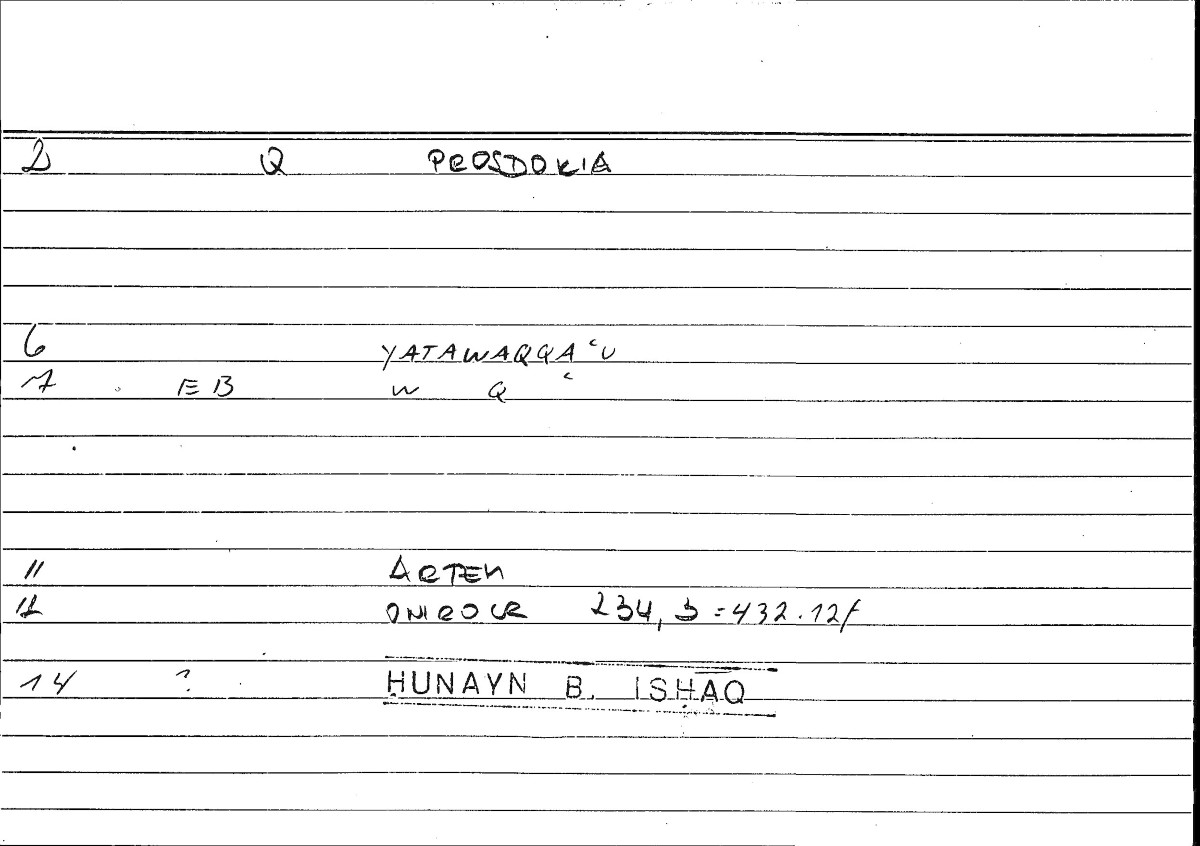 2 Q PROSDOKIA
6 YATAWAQQAʿU
7 EB W Q ʿ
11 ARTEM
12 ONIROCR 234, 3 = 432.12f
14 ? ḤUNAYN B. ISḤĀQ